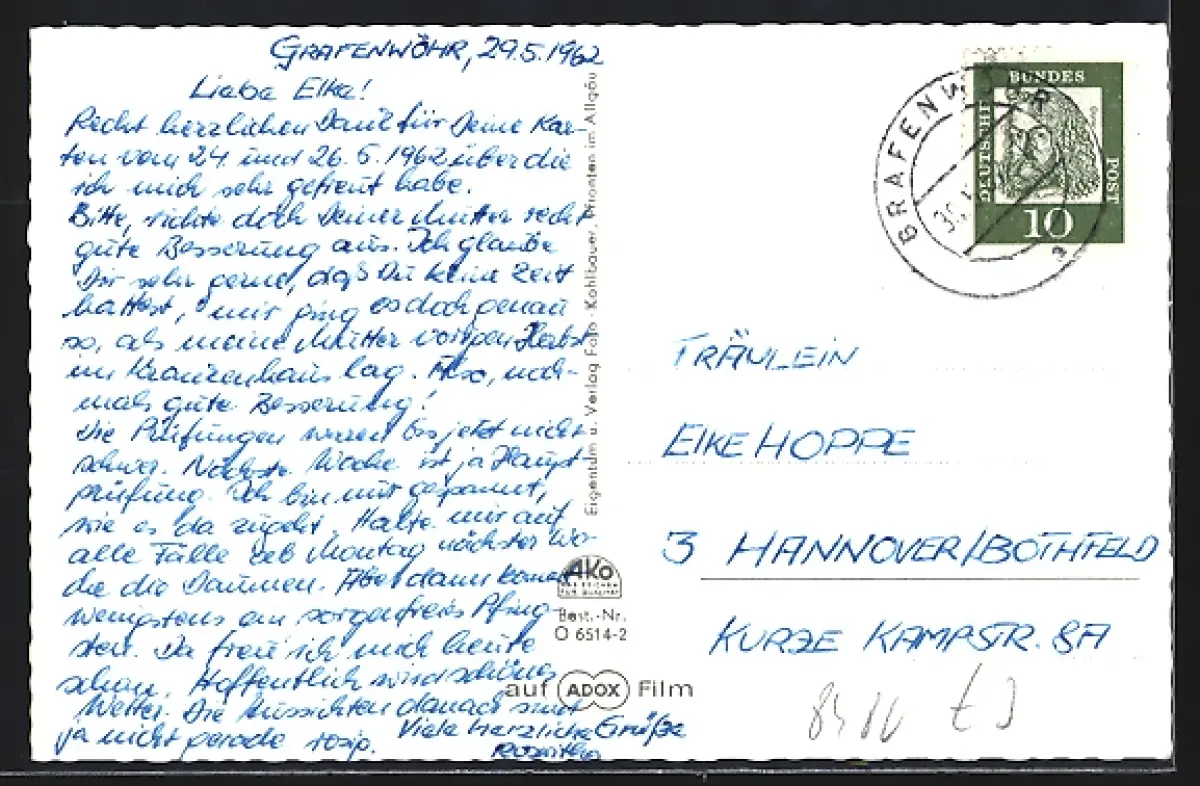 GRAFENWÖHR, 29.5.1962
Liebe Elke!
Recht herzlichen Dank für Deine Kar-
ten vom 24 und 26.5.1962 über die
ich mich sehr gefreut habe.
Bitte, richte doch Deiner Mutter recht
gute Besserung aus. Ich glaube
Dir sehr gerne, daß Du keine Zeit
hattest, mir ging es doch genau
so, als meine Mutter vorigen Herbst
im Krankenhaus lag. Also, noch-
mals gute Besserung!
Die Prüfungen waren bis jetzt nicht
schwer. Nächste Woche ist ja Haupt-
prüfung. Ich bin nur gespannt,
wie es da zugeht. Halte mir auf
alle Fälle ab Montag nächster Wo-
che die Daumen. Aber dann kommt
wenigstens ein sorgenfreies Pfing-
sten. Da freu ich mich heute
schon. Hoffentlich wird schönes
Wetter. Die Aussichten danach sind
ja nicht gerade rosig.
Viele herzliche Grüße
Roswitha
Eigentum u. Verlag Foto-Kohlbauer, Pfronten im Allgäu
AKO
DAS ZEICHEN
FÜR QUALITÄT
Best.-Nr.
O 6514-2
auf ADOX Film
GRAFENWÖHR
a
DEUTSCHE
BUNDES
POST
10
FRÄULEIN
ELKE HOPPE
3 HANNOVER/BOTHFELD
KURZE KAMPSTR. 8A